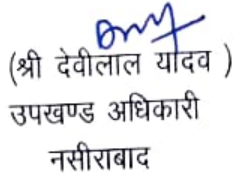 (श्री देवीलाल यादव )
उपखण्ड अधिकारी
नसीराबाद